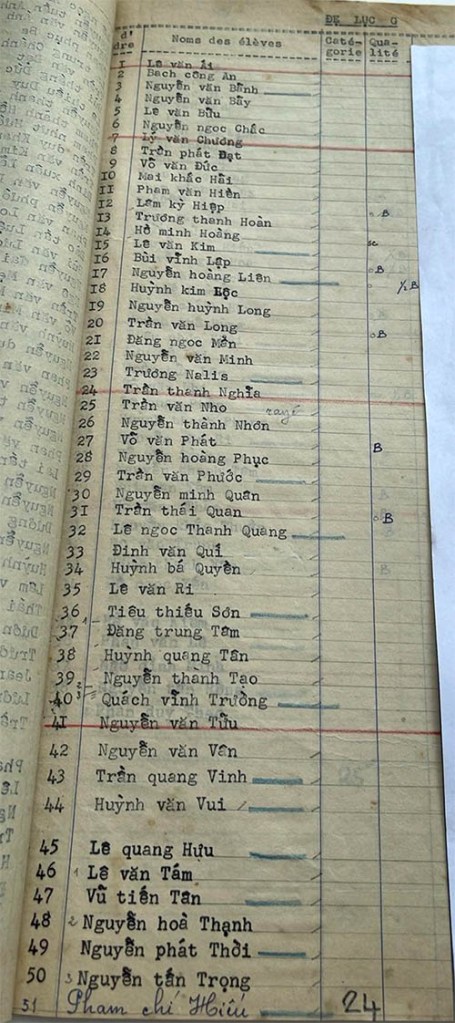 ĐỆ LỤC G
d'
dre Noms des élèves Caté-
gorie Qua-
lité
1 Lê văn Ái
2 Bạch công An
3 Nguyễn văn Bánh
4 Nguyễn văn Bảy
5 Lê văn Bửu
6 Nguyễn ngọc Chắc
7 Lý văn Chương
8 Trần phát Đạt
9 Võ văn Đức
10 Mai khắc Hải
11 Phạm văn Hiền
12 Lâm kỳ Hiệp
13 Trương thanh Hoàn B
14 Hồ minh Hoàng
15 Lê văn Kim
16 Bùi vĩnh Lập B
17 Nguyễn hoàng Liên
18 Huỳnh kim Lộc ½ B
19 Nguyễn huỳnh Long
20 Trần văn Long B
21 Đăng ngọc Mến
22 Nguyễn văn Minh
23 Trương Nalis
24 Trần thành Nghĩa
25 Trần văn Nho rayé
26 Nguyễn thành Nhơn
27 Võ văn Phát B
28 Nguyễn hoàng Phục
29 Trần văn Phước
30 Nguyễn minh Quân
31 Trần thái Quan B
32 Lê ngọc Thanh Quang
33 Đinh văn Quí
34 Huỳnh bá Quyền
35 Lê văn Ri
36 Tiêu thiếu Sơn
37 Đăng trung Tâm
38 Huỳnh quang Tân
39 Nguyễn thành Tạo
40 Quách vĩnh Trường
41 Nguyễn văn Tửu
42 Nguyễn văn Vân
43 Trần quang Vinh
44 Huỳnh văn Vui
45 Lê quang Hựu
46 1 Lê văn Tám
47 Vũ tiến Tân
48 2 Nguyễn hoà Thạnh
49 Nguyễn phát Thời
50 3 Nguyễn tấn Trọng
51 Phạm chí Hiếu 24